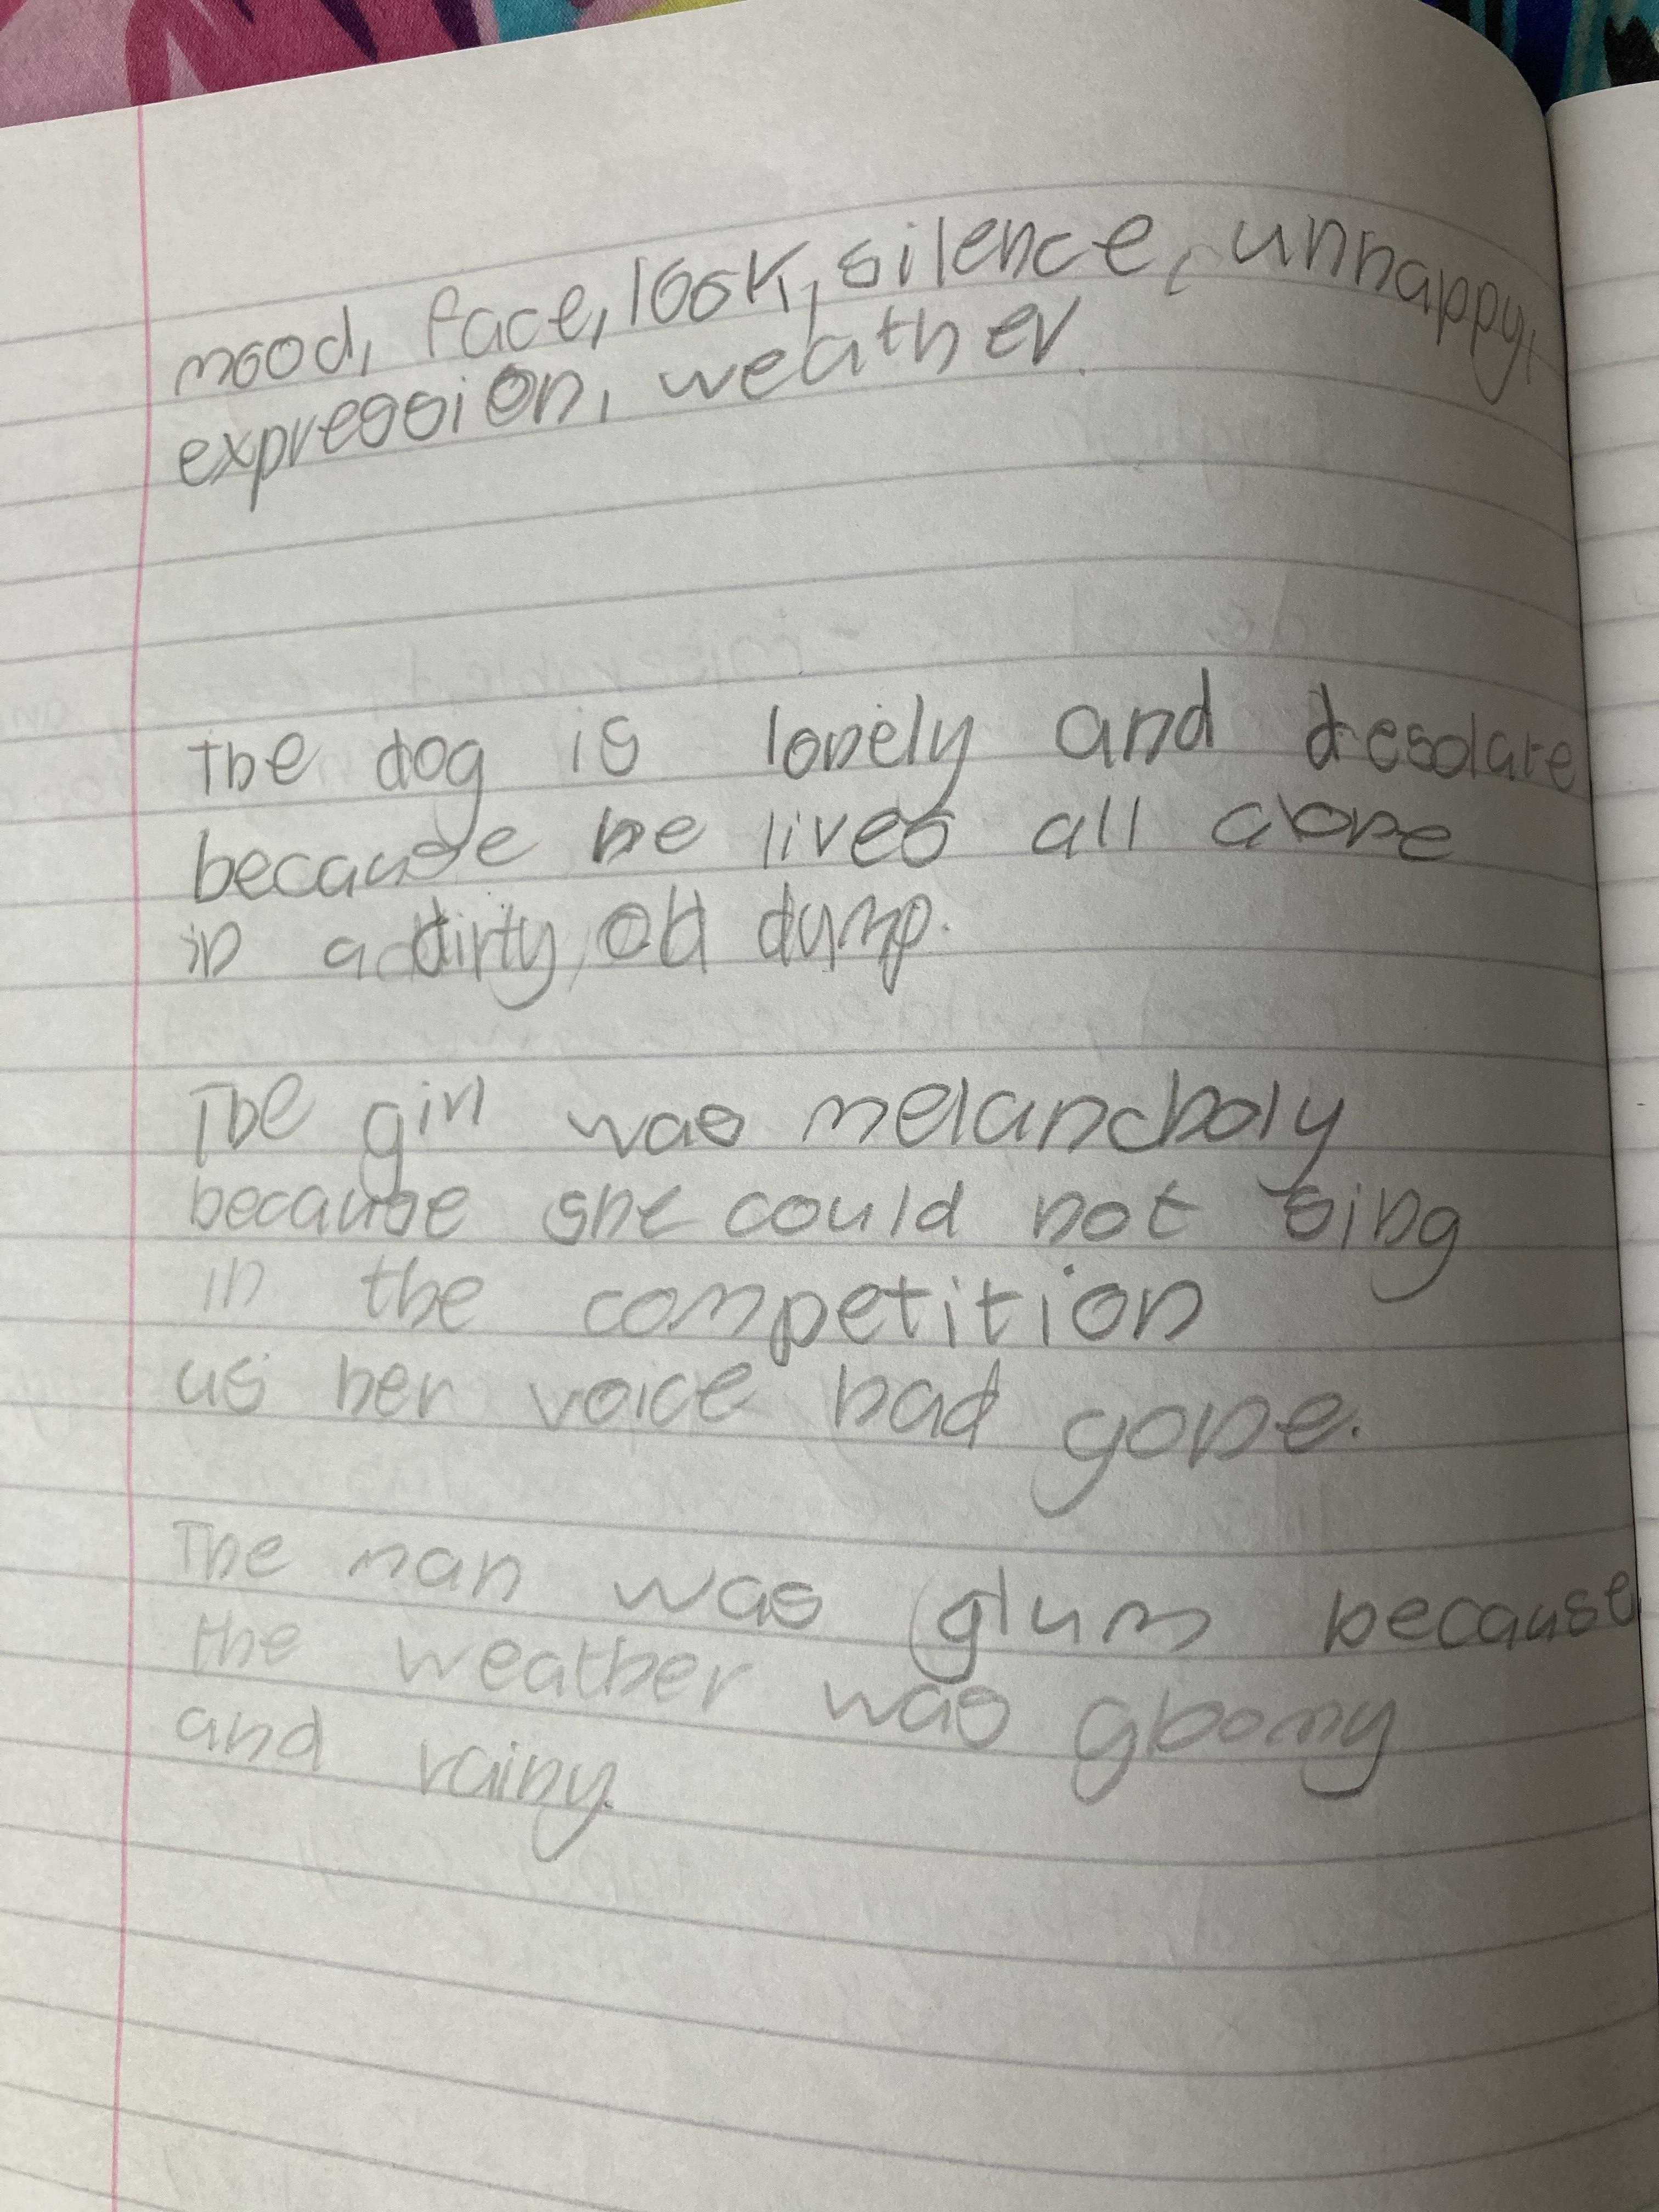 mood, face, look, silence, unhappy,
expression, weather.
The dog is lonely and desolate
because he lives all alone
in a dirty, old dump.
The girl was melancholy
because she could not sing
in the competition
as her voice had gone.
The man was glum because
the weather was gloomy
and rainy.